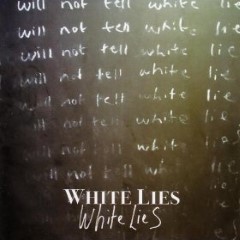 will not tell white lie
will not tell white lie
will not tell white lie
will not tell white lie
will not tell white lie
will not tell white lie
will not tell white lie
will not tell white lie
WHITE LIES
White LieS